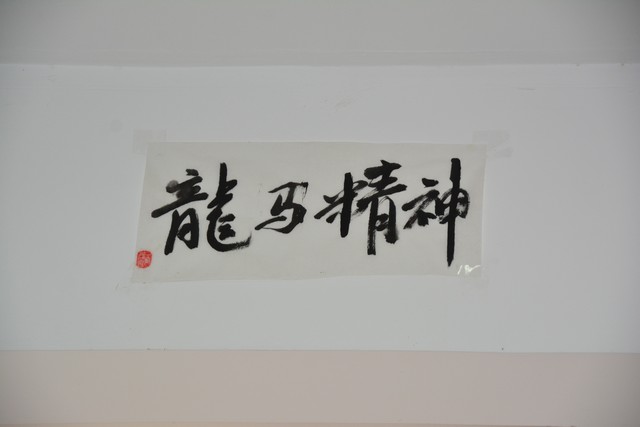 龍马精神